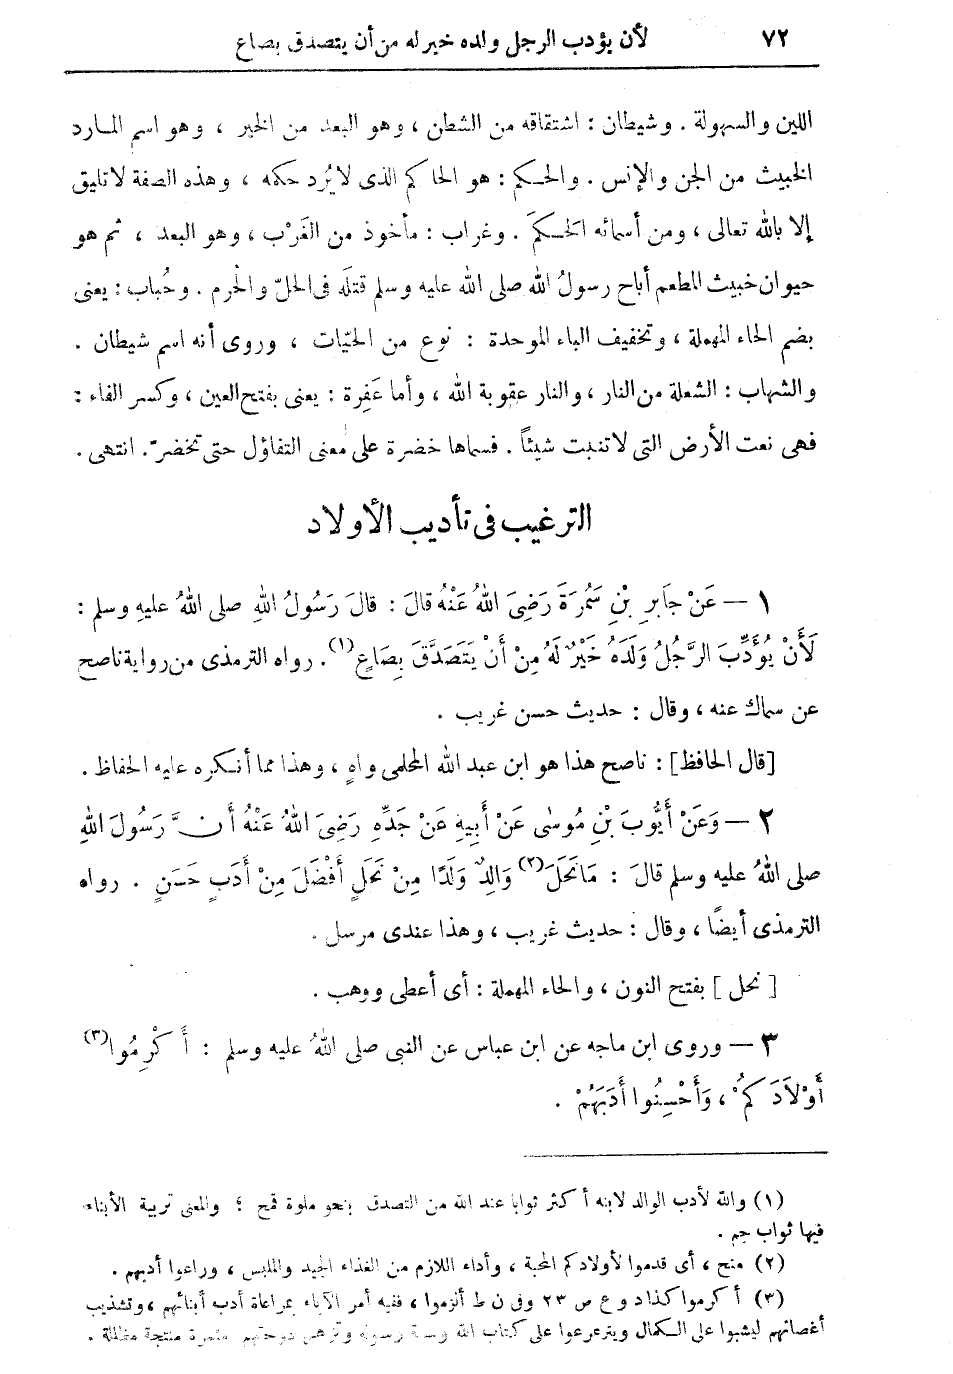 ٧٢ لأن يؤدب الرجل ولده خير له من أن يتصدق بصاع
اللين والسهولة . وشيطان : اشتقاقه من الشطن ، وهو البعد من الخير ، وهو اسم المارد
الخبيث من الجن والإنس . والحكم : هو الحاكم الذى لا يُرد حكمه ، وهذه الصفة لا تليق
إلا بالله تعالى ، ومن أسمائه الحكمَ . وغراب : مأخوذ من الغَرْب ، وهو البعد ، ثم هو
حيوان خبيث المطعم أباح رسولُ الله صلى الله عليه وسلم قتلَه فى الحلّ والحرم . وحُباب : يعنى
بضم الحاء المهملة ، وتخفيف الباء الموحدة : نوع من الحيّات ، وروى أنه اسم شيطان .
والشهاب : الشعلة من النار ، والنار عقوبة الله ، وأما عَفِرة : يعنى بفتح العين ، وكسر الفاء :
فهى نعت الأرض التى لا تنبت شيئاً . فسماها خضرة على معنى التفاؤل حتى تخضرّ . انتهى .
الترغيب فى تأديب الأولاد
١ — عَنْ جَابِرِ بْنِ سَمُرَةَ رَضِىَ اللهُ عَنْهُ قالَ : قالَ رَسُولُ اللهِ صلى اللهُ عليهِ وسلم :
لَأَنْ يُؤَدِّبَ الرَّجُلُ وَلَدَهُ خَيْرٌ لَهُ مِنْ أَنْ يَتَصَدَّقَ بِصَاعٍ (١) . رواه الترمذى من رواية ناصح
عن سماك عنه ، وقال : حديث حسن غريب .
[قال الحافظ] : ناصح هذا هو ابن عبد الله المحلمى واهٍ ، وهذا مما أنكره عليه الحفاظ .
٢ — وَعَنْ أَيُّوبَ بْنِ مُوسٰى عَنْ أَبِيهِ عَنْ جَدِّهِ رَضِىَ اللهُ عَنْهُ أَنَّ رَسُولَ اللهِ
صلى اللهُ عليه وسلم قالَ : مَا نَحَلَ (٢) وَالِدٌ وَلَدًا مِنْ نَحَلٍ أَفْضَلَ مِنْ أَدَبٍ حَسَنٍ . رواه
الترمذى أيضًا ، وقال : حديث غريب ، وهذا عندى مرسل .
[ نحل ] بفتح النون ، والحاء المهملة : أى أعطى ووهب .
٣ — وروى ابن ماجه عن ابن عباس عن النبى صلى اللهُ عليه وسلم : أَكْرِمُوا (٣)
أَوْلَادَكُمْ ، وَأَحْسِنُوا أَدَبَهُمْ .
(١) والله لأدب الوالد لابنه أكثر ثوابا عند الله من التصدق بنحو ملوة قمح ؛ والمعنى تربية الأبناء
فيها ثواب جم .
(٢) منح ، أى قدموا لأولادكم المحبة ، وأداء اللازم من الغذاء الجيد والملبس ، وراعوا أدبهم .
(٣) أكرموا كذا د وع ص ٢٣ وفى ن ط ألزموا ، ففيه أمر الآباء بمراعاة أدب أبنائهم ، وتشذيب
أغصانهم ليشبوا على الكمال ويترعرعوا على كتاب الله وسنة رسوله وتزهى دوحتهم مثمرة منتجة مظللة .